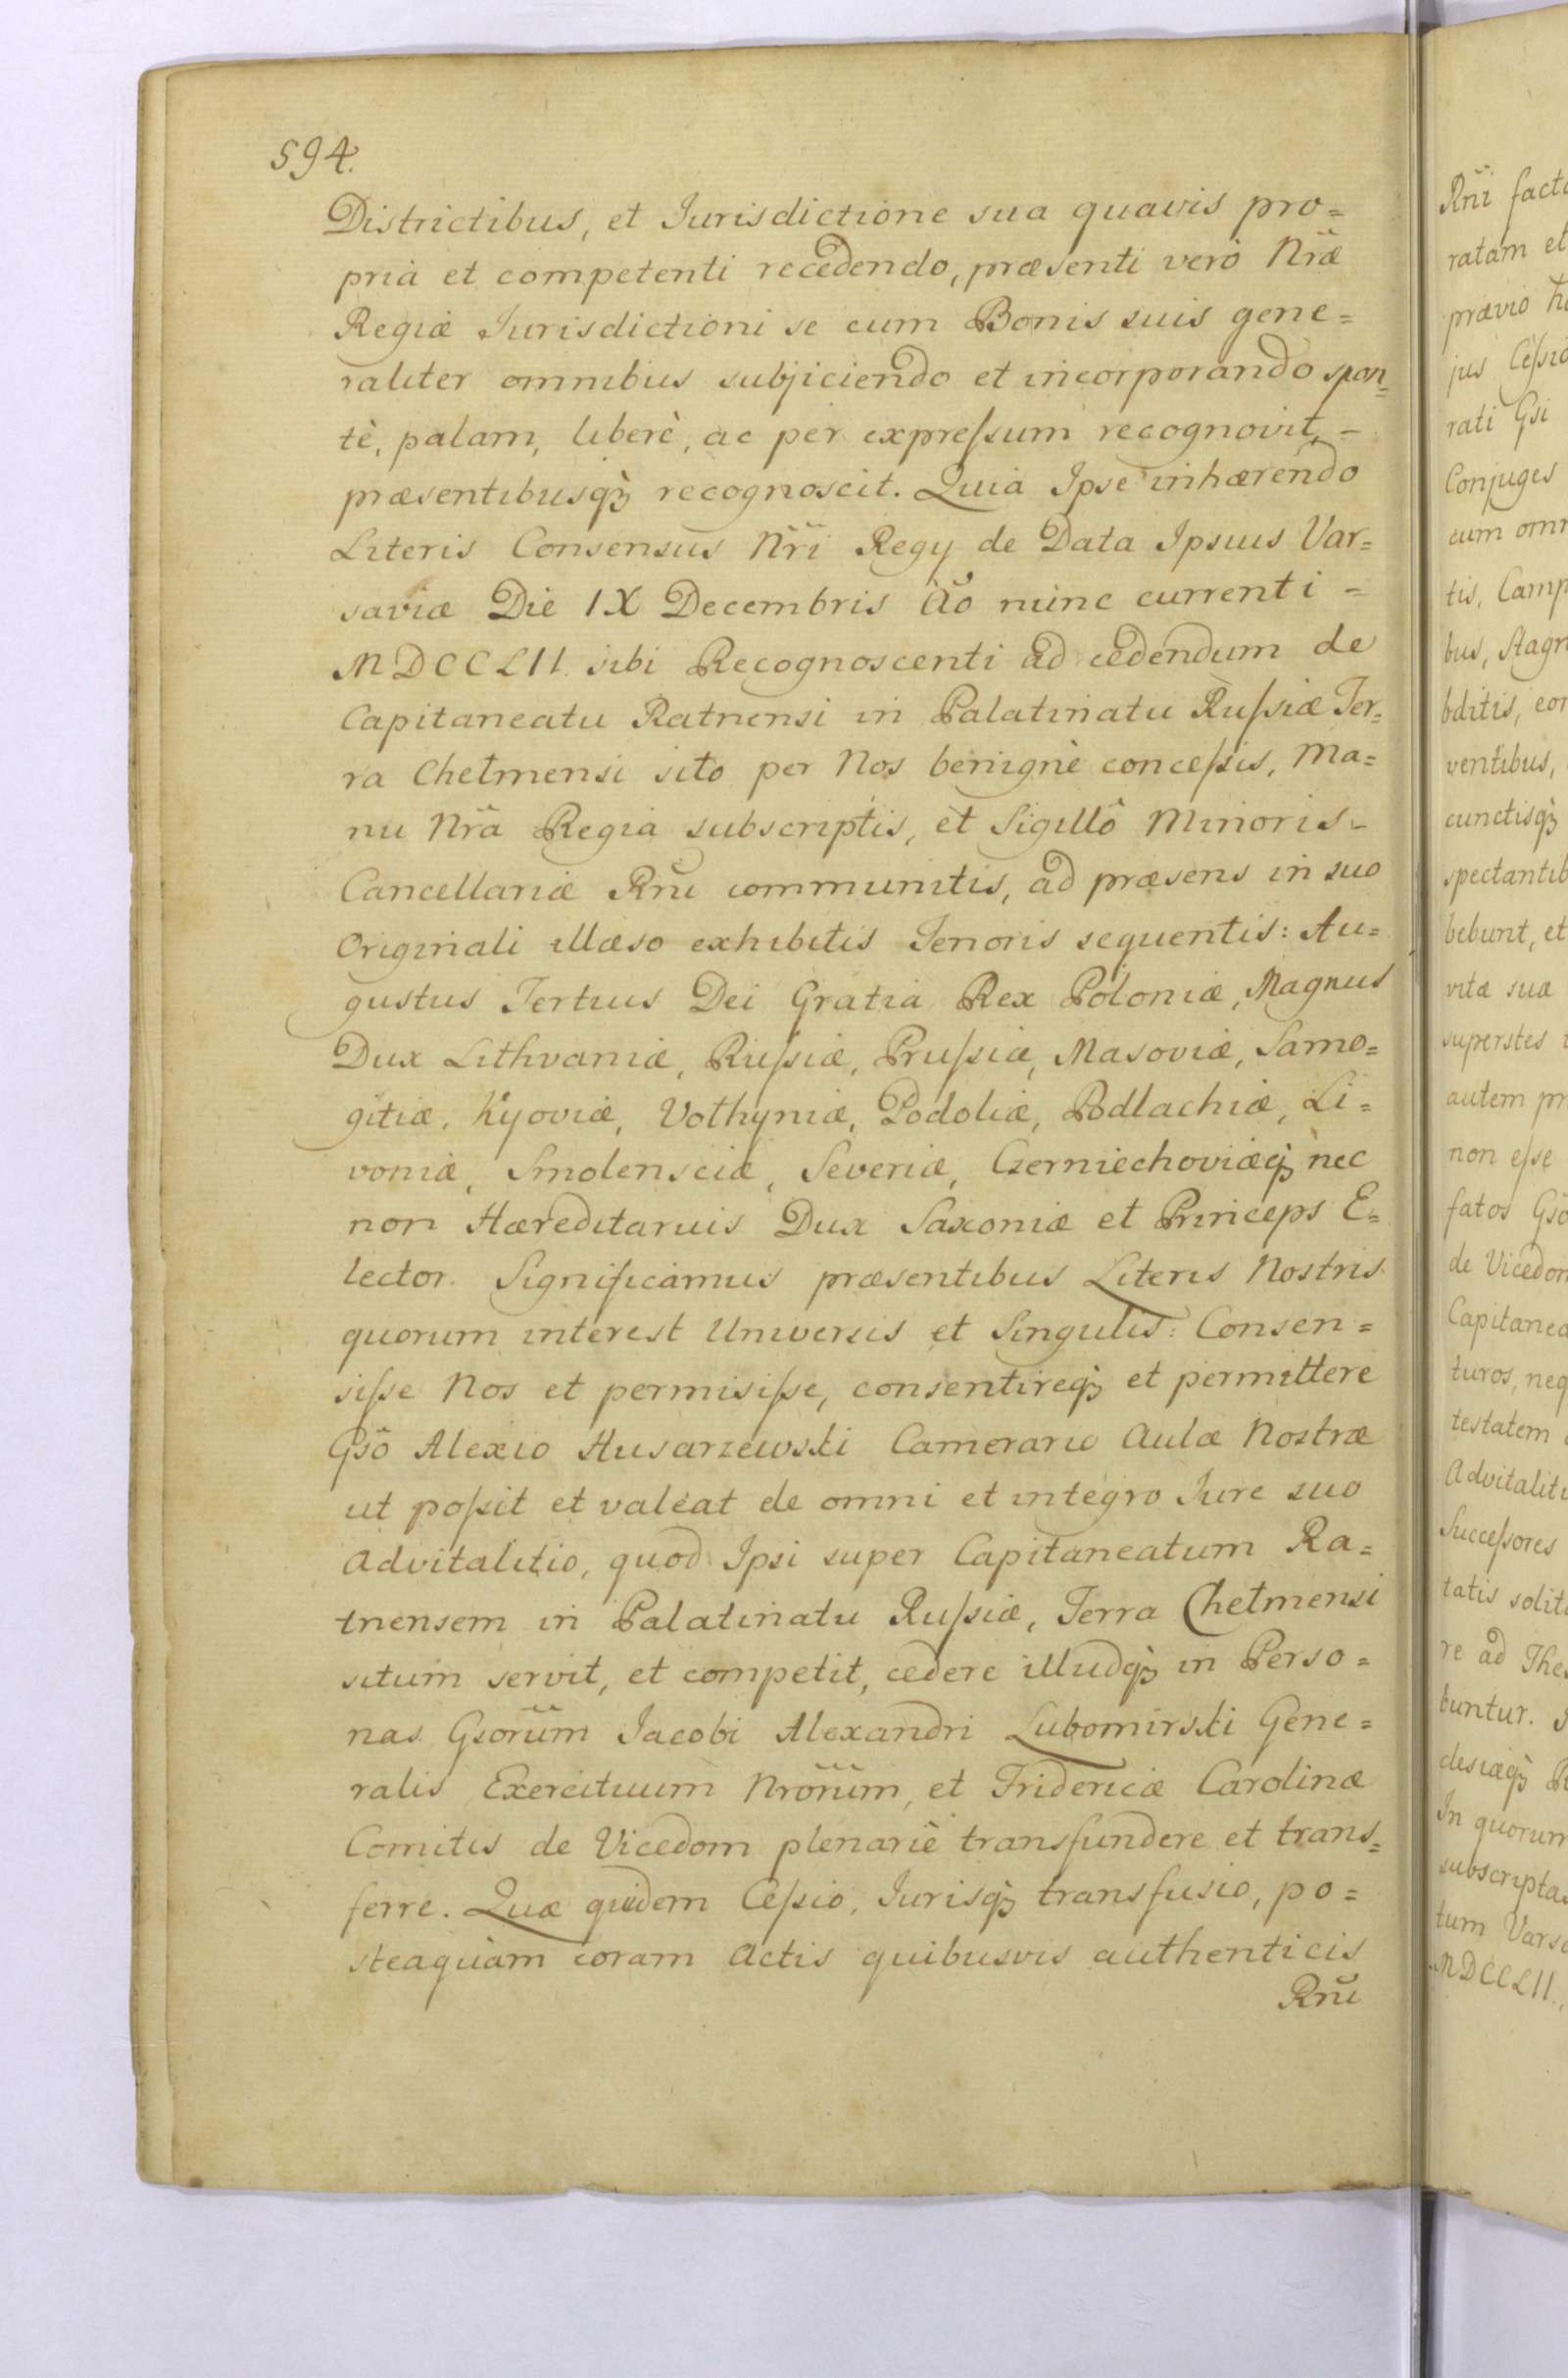 594.
Districtibus, et Iurisdictione sua quavis pro=
pria et competenti recedendo, præsenti verò Nr̃æ
Regiæ Iurisdictioni se cum Bonis suis gene=
raliter omnibus subjiciendo et incorporando spon=
tè, palam, liberè, ac per expreſsum recognovit, -
præsentibusqꝫ recognoscit. Quia Ipse inhærendo
Literis Consensus Nr̃i Regy de Data Ipsius Var=
saviæ Die IX Decembris Aõ nunc currenti =
MDCCLII. sibi Recognoscenti ad cedendum de
Capitaneatu Ratnensi in Palatinatu Ruſsiæ Ter=
ra Chełmensi sito per Nos benignè conceſsis, Ma=
nu Nr̃a Regia subscriptis, et Sigillô Minoris-
Cancellariæ Rñi communitis, ad præsens in suo
Originali illæso exhibitis Tenoris sequentis: Au=
gustus Tertius Dei Gratia Rex Poloniæ, Magnus
Dux Lithvaniæ, Ruſsiæ, Pruſsiæ, Masoviæ, Samo=
gitiæ, Kyoviæ, Vołhyniæ, Podoliæ, Podlachiæ, Li=
voniæ, Smolensciæ, Severiæ, Czerniechoviæqꝫ nec
non Hæreditarius Dux Saxoniæ et Princeps E=
lector. Significamus præsentibus Literis Nostris
quorum interest Universis et Singulis: Consen=
siſse Nos et permisiſse, consentireqꝫ et permittere
Gsõ Alexio Husarzewski Camerario Aulæ Nostræ
ut poſsit et valeat de omni et integro Iure suo
Advitalitio, quod Ipsi super Capitaneatum Ra=
tnensem in Palatinatu Ruſsiæ, Terra Chełmensi
situm servit, et competit, cedere illudqꝫ in Perso=
nas Gsorũm Iacobi Alexandri Lubomirski Gene=
ralis Exercituum Nrorũm, et Fridericæ Carolinæ
Comitis de Vicedom plenariè transfundere et trans=
ferre. Quæ quidem Ceſsio, Iurisqꝫ transfusio, po=
steaquàm coram Actis quibusvis authenticis
Rñi
Rñi
ratam et
prævio
jus
rati Gsi
Conjuges
cum
tis,
bus,
bditis,
ventibus,
cunctisqꝫ
bebunt, et
vitæ suæ
superstes
autem
non eſse
fatos
de
turos,
testatem
Succeſsores
tatis
re ad
buntur.
In quorum
tum
MDCCLII.